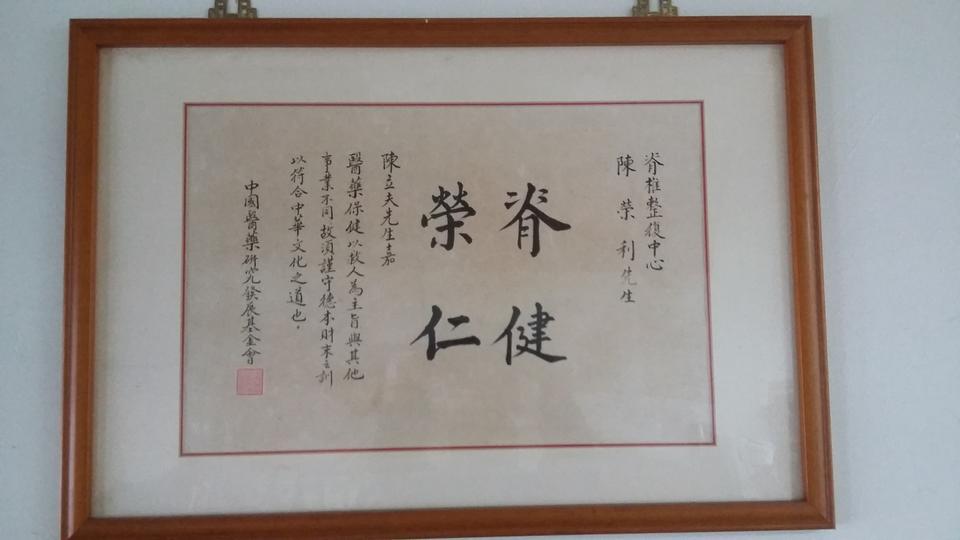 脊椎整復中心
陳榮利先生
脊健
榮仁
陳立夫先生嘉
醫藥保健以救人為主旨與其他
事業不同故須謹守德本財末之訓
以符合中華文化之道也。
中國醫藥研究發展基金會